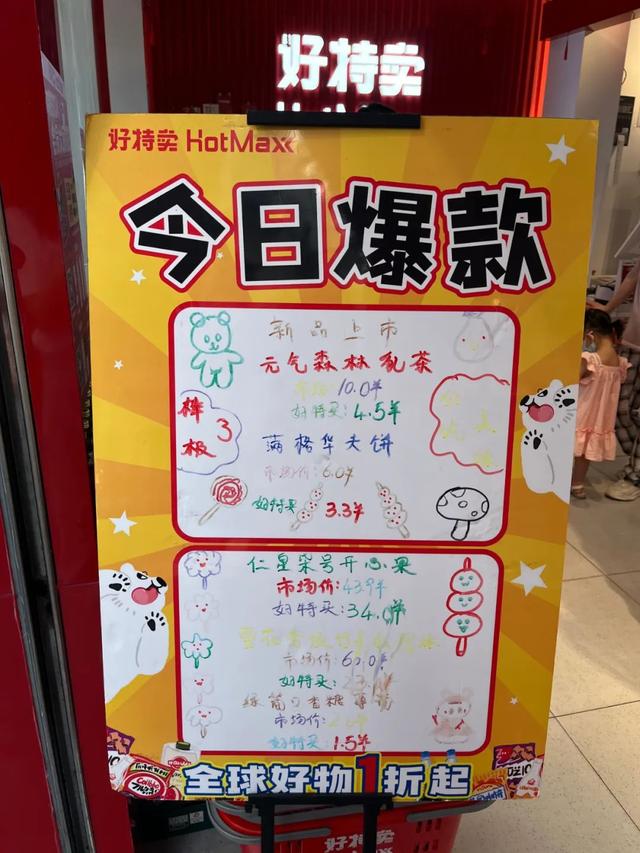 好特卖
好特卖 HotMaxx
今日爆款
新品上市
元气森林乳茶
市场价:10.0半
好特买:4.5半
榉板3
满格华夫饼
市场价:6.0半
好特买 3.3半
仁星柒号开心果
市场价:43.9半
好特买:34.0半
市场价:60.0半
好特买:
绿箭口香糖
市场价:
好特买:1.5半
全球好物1折起
好特卖